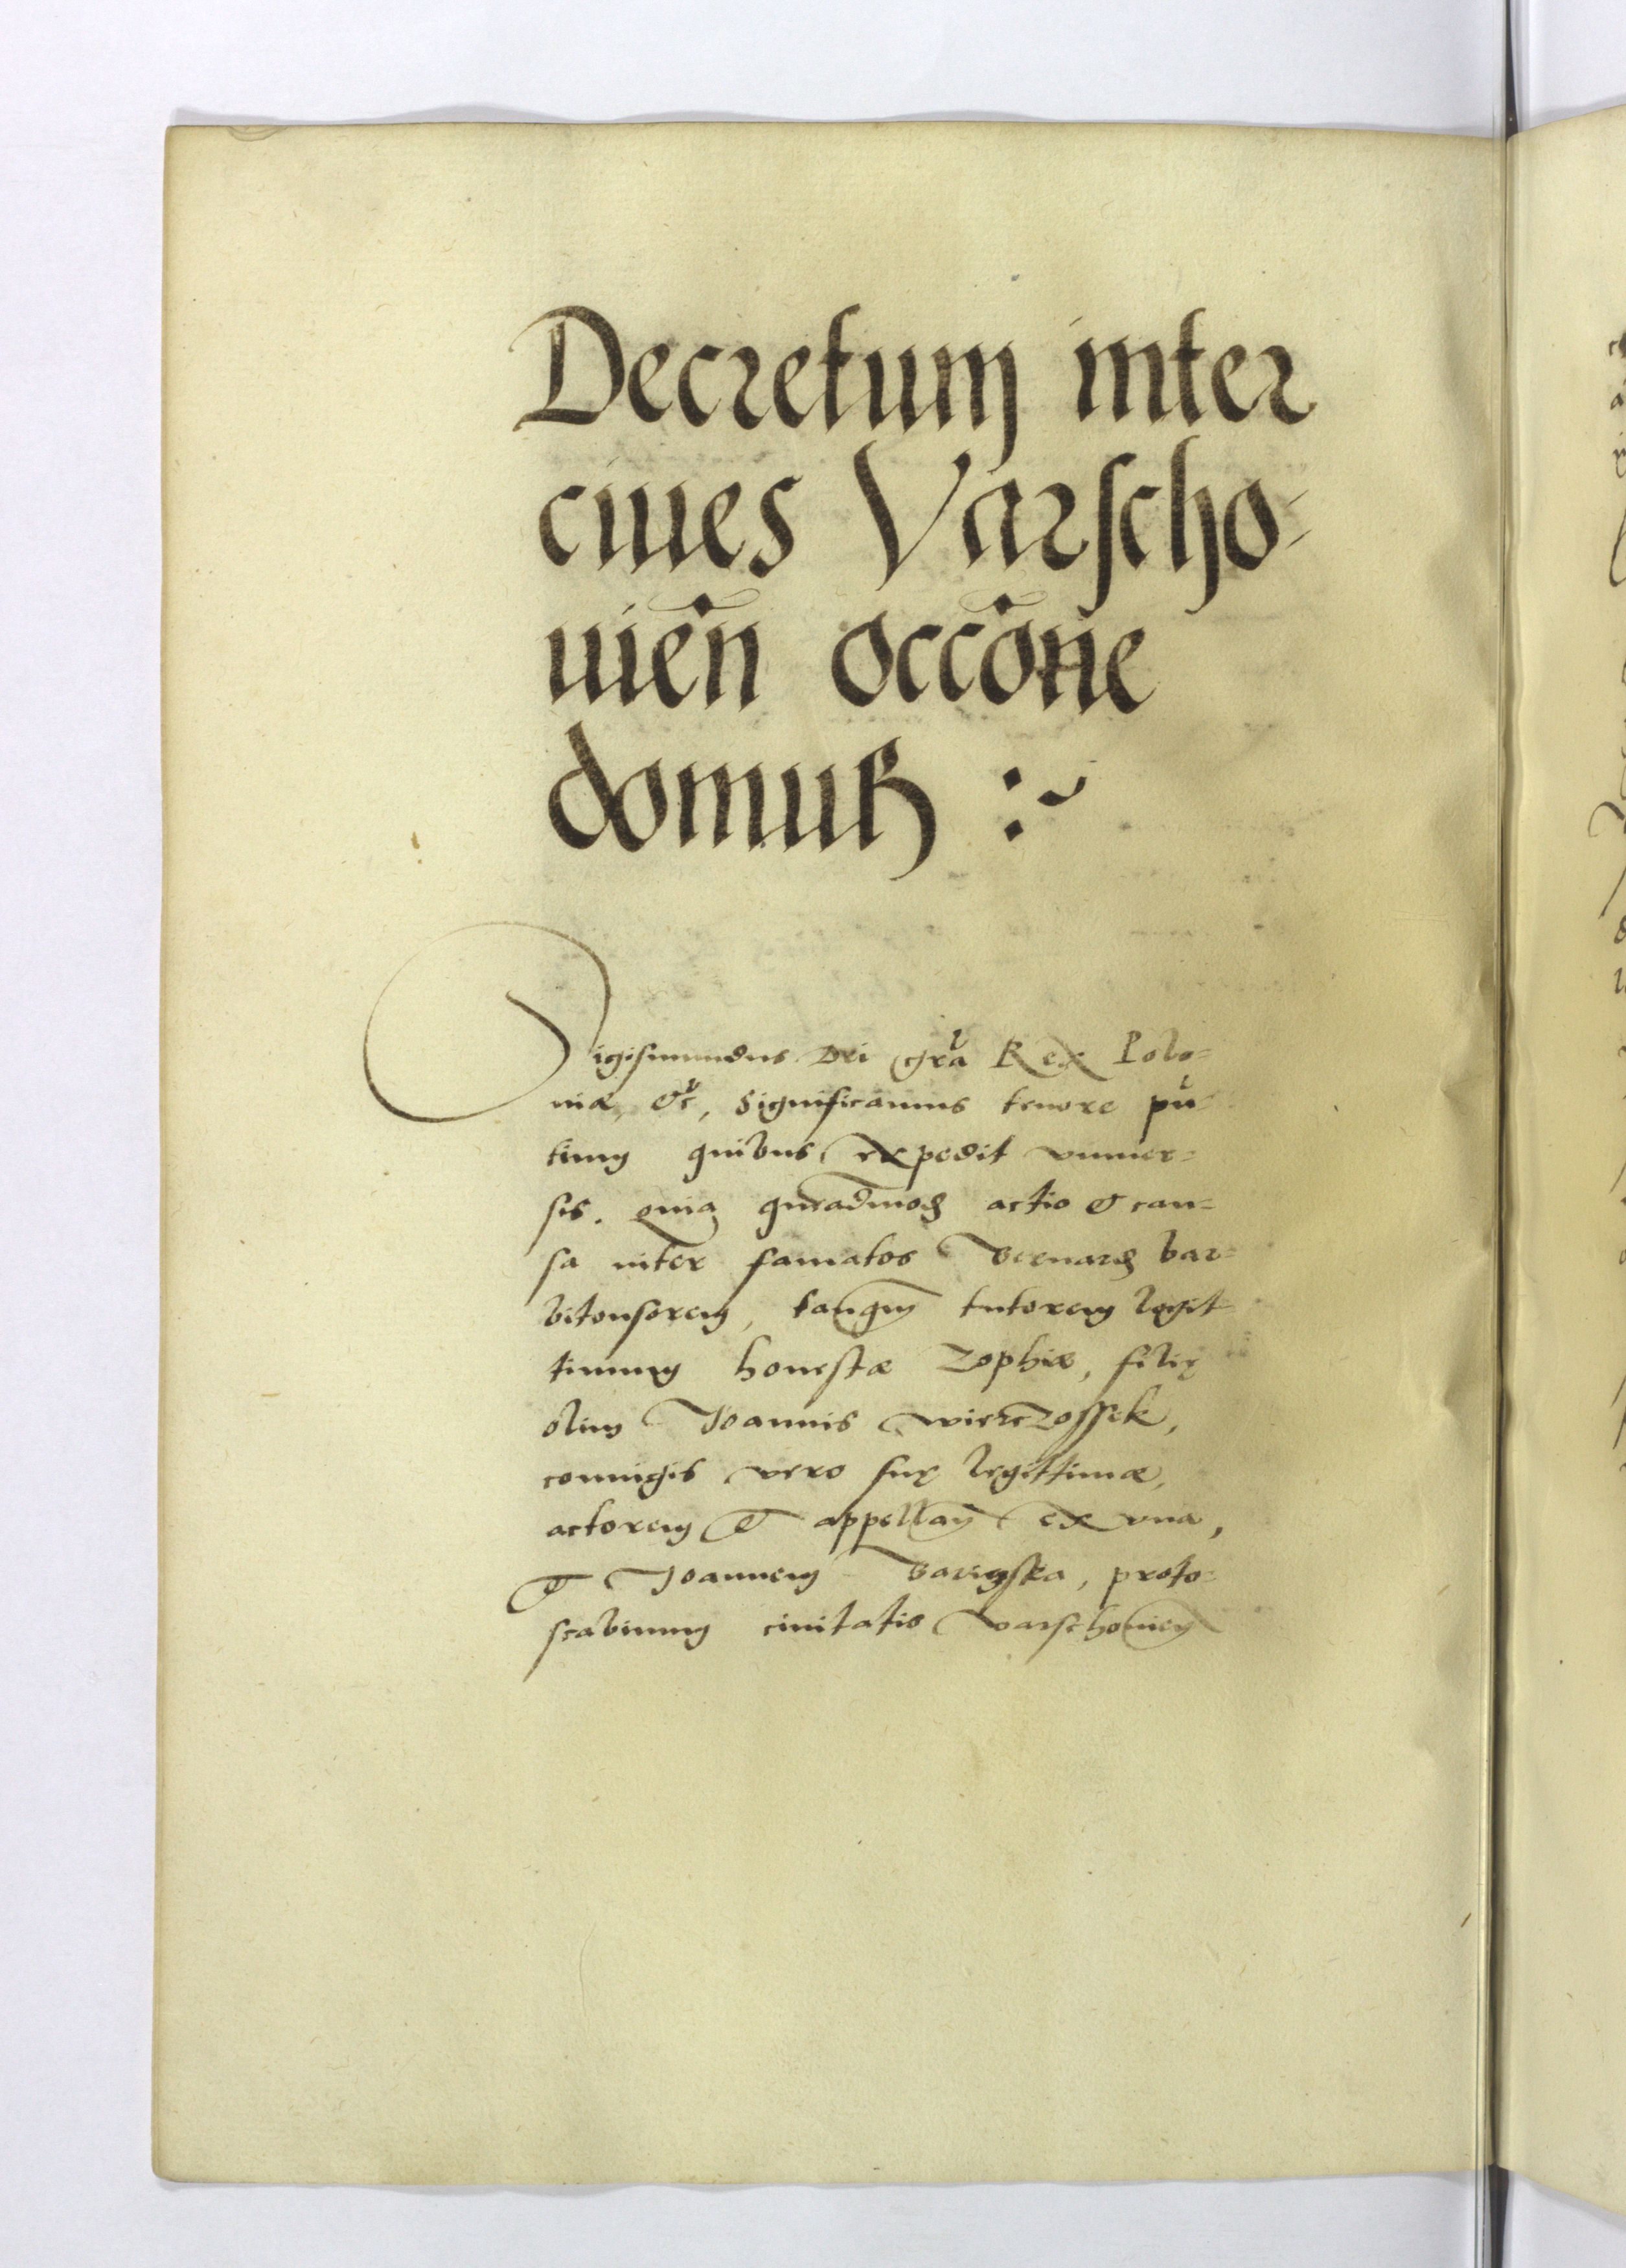 Decretum inter
ciues Varscho-
uień occōne
domuß :~
Sigismundus Dei gra Rex Polo=
niæ, &c, Significamus tenore pn̄
tium quibus expedit vniuer=
sis. Quia quēadmod actio & cau=
sa inter famatos Bernard bar=
bitonsorem, tanqm tutorem legit=
timum honestæ Zophiæ, filię
olim Joannis Wierczossek,
coniugis vero suę legittimæ,
actorem & appellan ex vna,
& Joannem Barigska, proto=
scabinum ciuitatis Varschouien